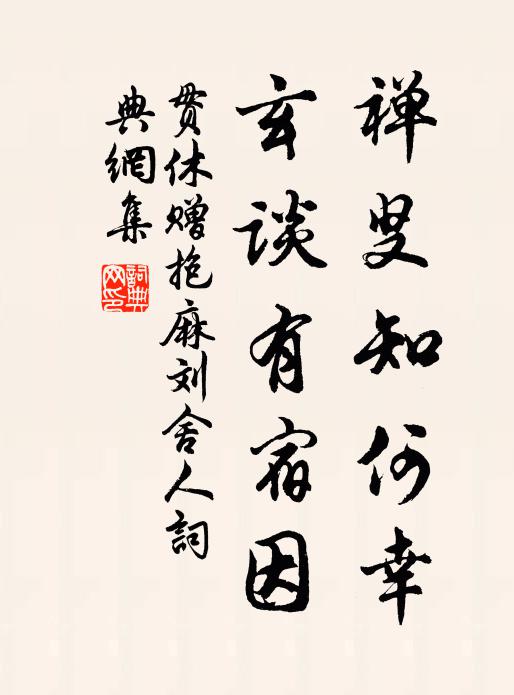 禅叟知何幸
玄谈有宿因
贯休赠抱麻刘舍人詞
典網集
詞典网印